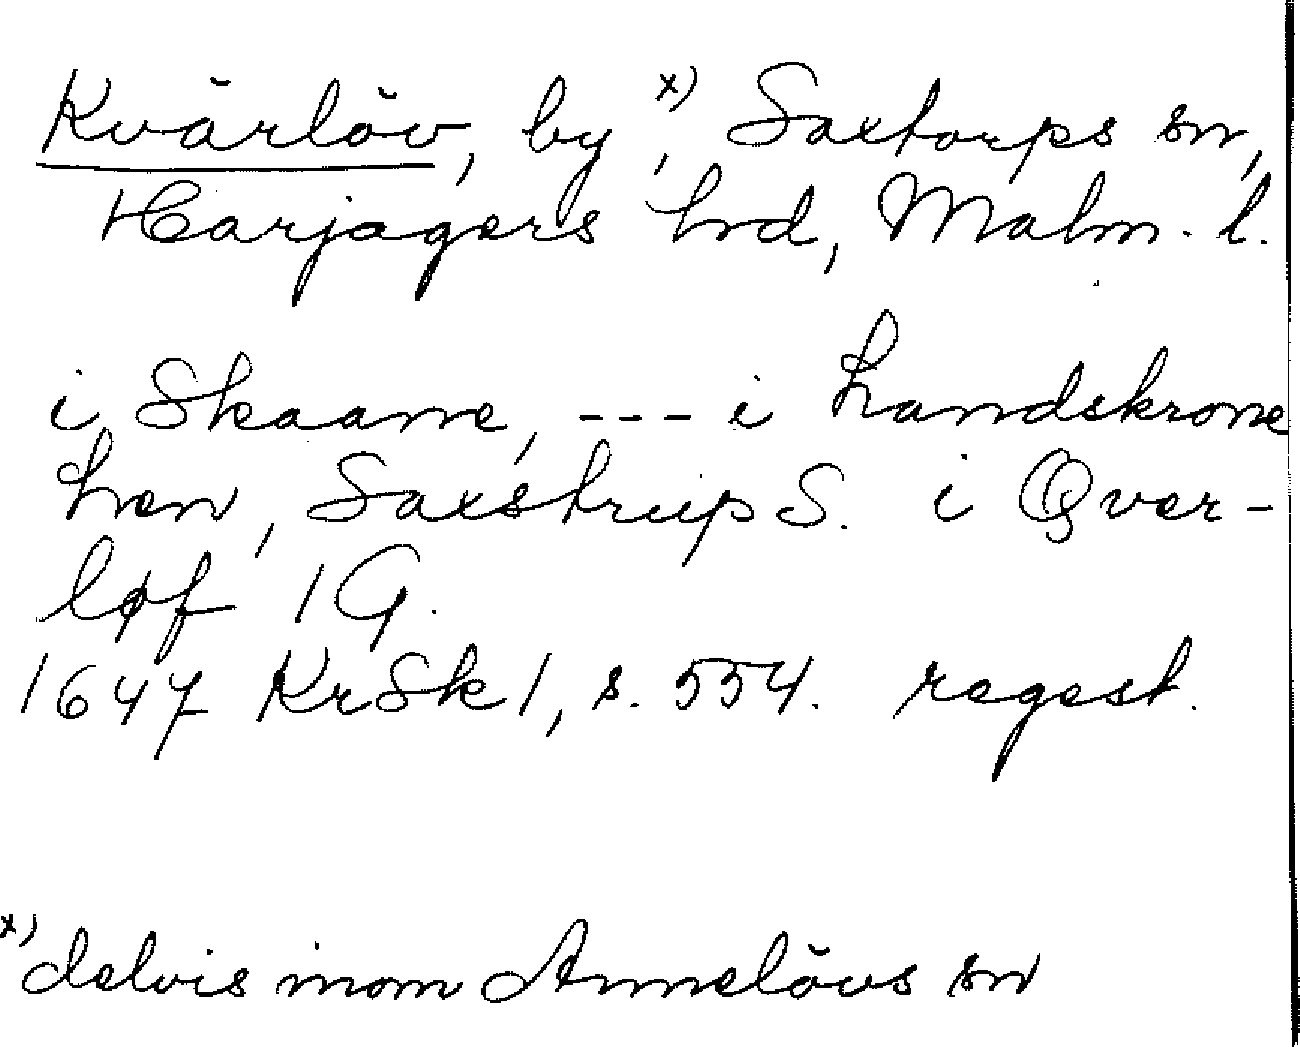 Kvärlöv, by x), Saxtorps sn,
Harjagers hrd, Malm. l.
i Skaane, --- i Landskrone
Len, Saxstrup S. i Qver-
løf 1 G.
1647 KrSk 1, s. 554. regest.
x) delvis inom Annelövs sn